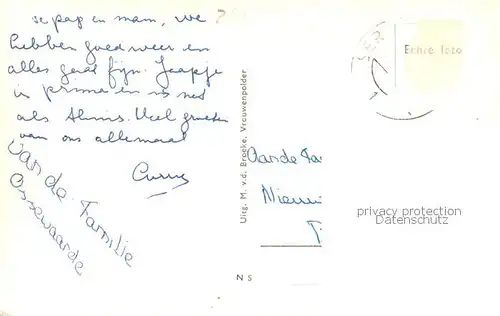 se pap en mam, we
hebben goed weer en
alles gaat fijn. Jaapje
is prima en is net
als thuis. Veel groeten
van ons allemaal
Van de Familie
Uitg. M. v.d. Broeke, Vrouwenpolder
N S
Echte foto
Aan de Fa
Nieuw
privacy protection
Datenschutz